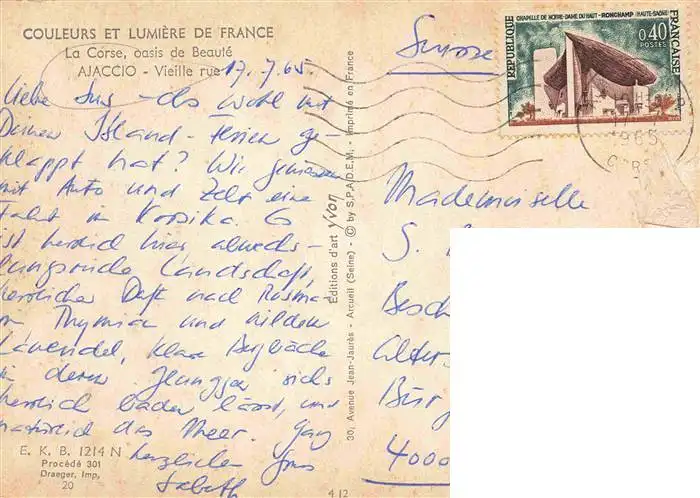 COULEURS ET LUMIÈRE DE FRANCE
La Corse, oasis de Beauté
AJACCIO - Vieille rue
17.7.65.
Liebe Sus - ob's wohl mit
Deinen Island-Ferien ge-
klappt hat? Wir geniessen
mit Auto und Zelt eine
Fahrt in Korsika. Es
ist herrlich hier, abwechs-
lungsreiche Landschaft,
herrlicher Duft nach Rosma-
rin Thymian und wildem
Lavendel, klare Bergbäche
in denen sichs
herrlich baden lässt, und
natürlich das Meer. Ganz
herzlichen Gruss
E. K. B. 1214 N
Procédé 301
Draeger, Imp,
20
4 12
Editions d'art Yvon
30, Avenue Jean-Jaurès - Arcueil (Seine) - © by S.P.A.D.E.M. - Imprimé en France
Suisse
CHAPELLE DE NOTRE-DAME DU HAUT - RONCHAMP (HAUTE-SAÔNE)
RÉPUBLIQUE
FRANÇAISE
0,40
POSTES
1965
Mademoiselle
S.
Besch
Alter
Bürg
4000